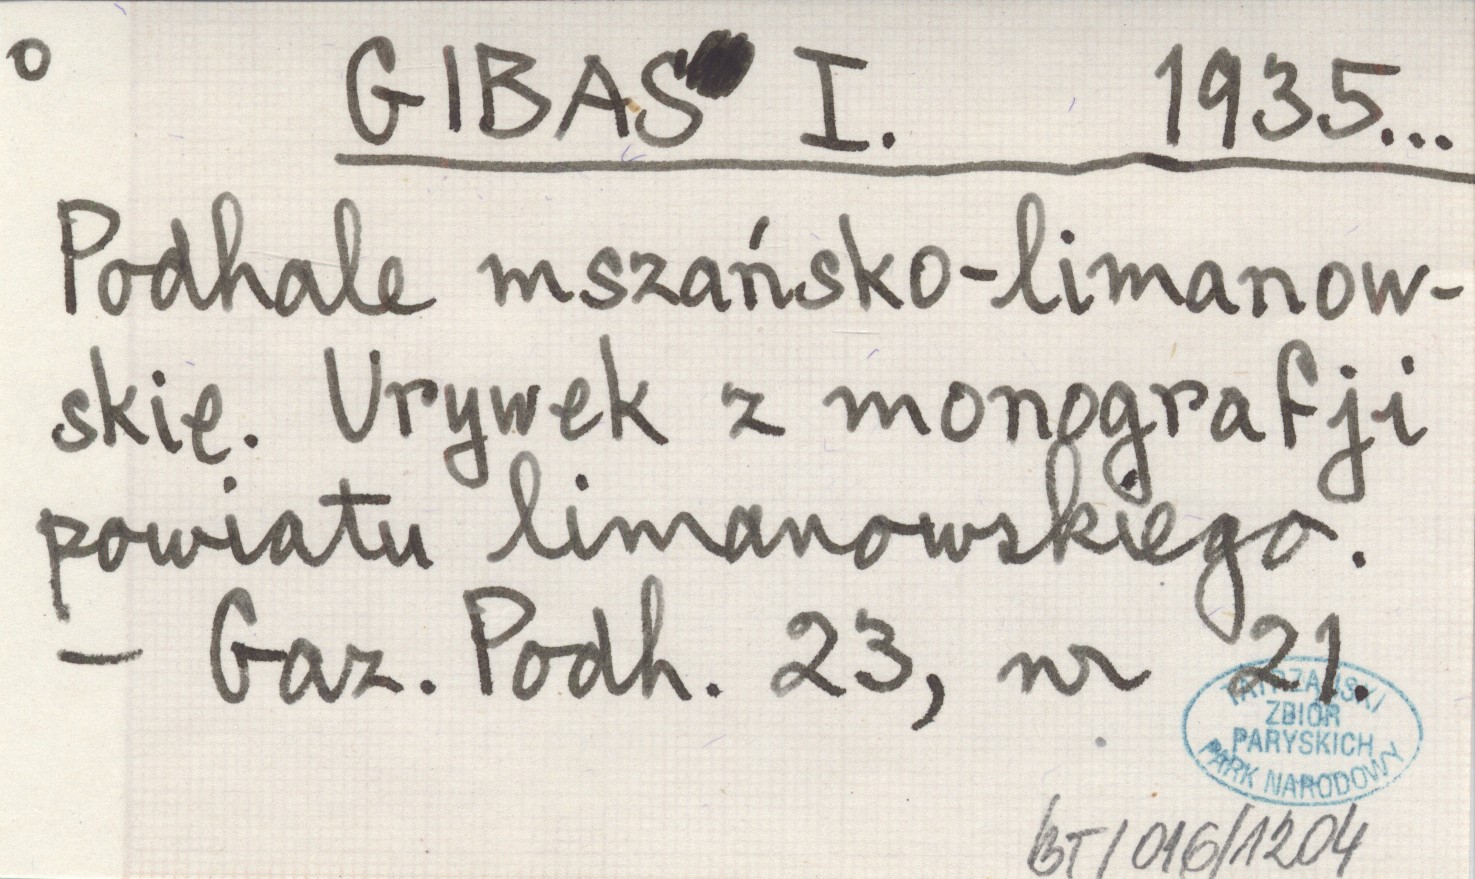 o GIBAS I. 1935...
Podhale mszańsko-limanow-
skię. Urywek z monografji
powiatu limanowskiego.
– Gaz. Podh. 23, nr 21.
TATRZAŃSKI
ZBIÓR
PARYSKICH
PARK NARODOWY
BT/016/1204